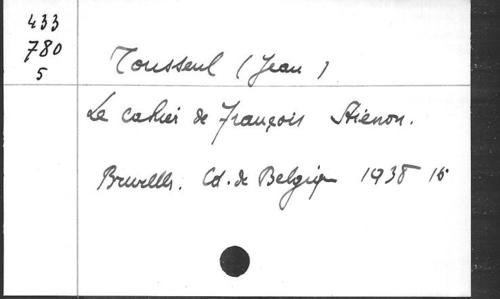 433
780
5
Tousseul (Jean)
Le cahier de François Stiénon.
Bruxelles. Ed. de Belgique 1938 16